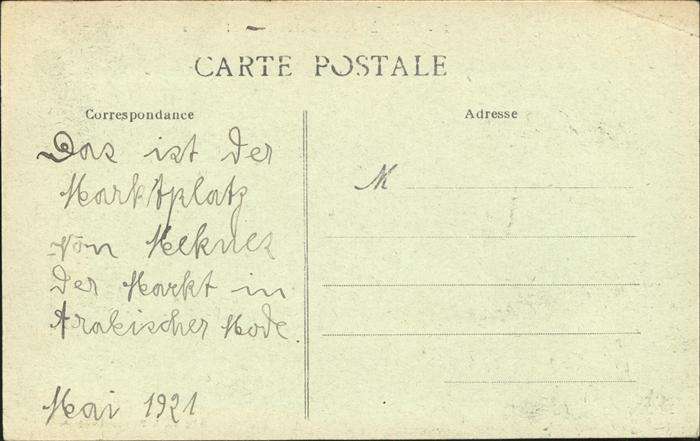 CARTE POSTALE
Correspondance
Adresse
Das ist der
Marktplatz
von Meknes
der Markt in
Arabischer Mode.
Mai 1921
M